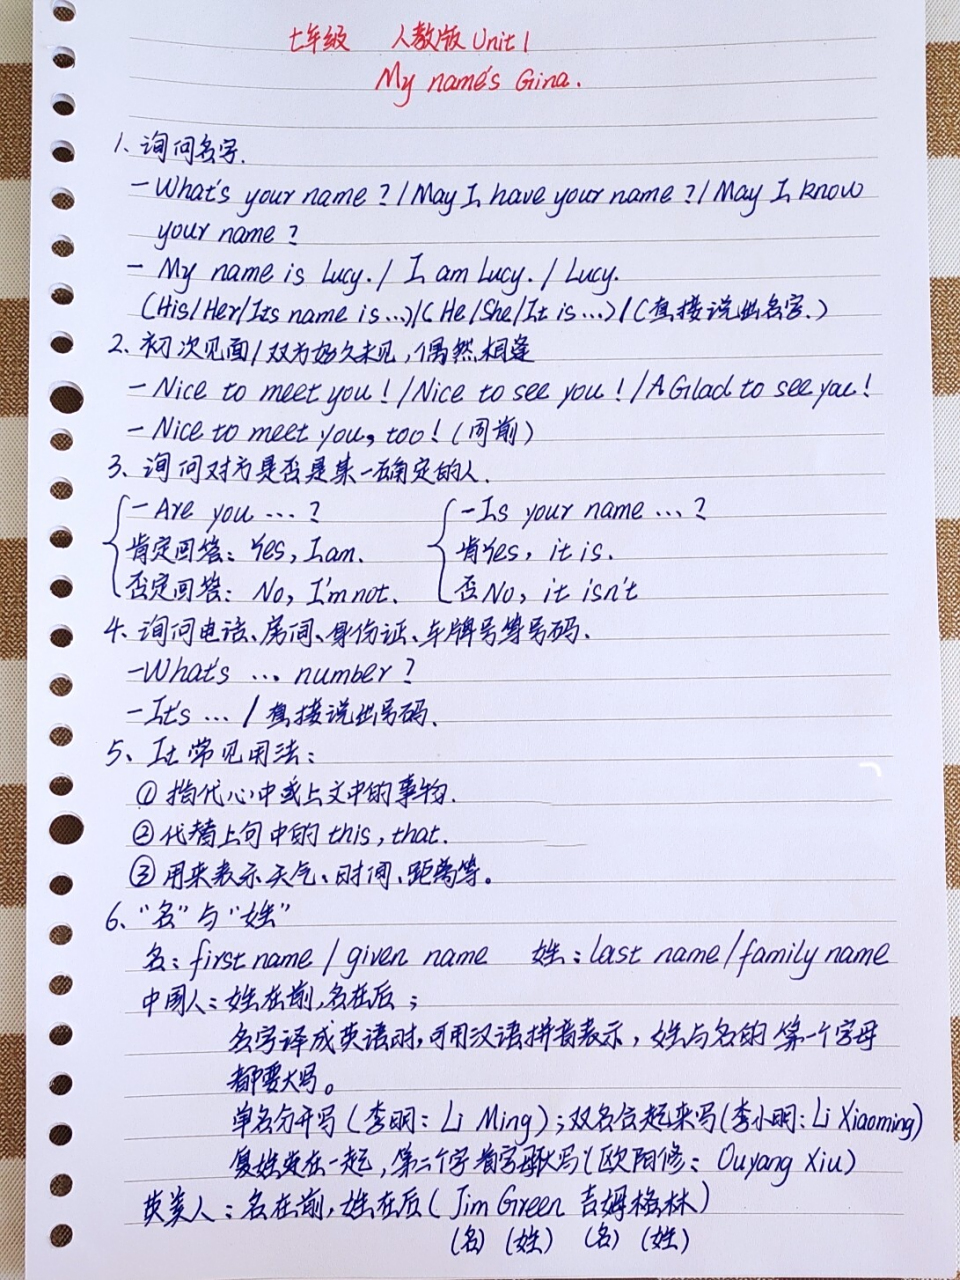 七年级 人教版 Unit 1
My name's Gina.
1、询问名字.
- What's your name ? / May I have your name ? / May I know
your name ?
- My name is Lucy. / I am Lucy. / Lucy.
(His/Her/Its name is ...)/( He/She/It is ...) / (直接说出名字.)
2、初次见面/双方好久未见,偶然相逢
- Nice to meet you ! / Nice to see you ! / A Glad to see you !
- Nice to meet you, too ! (同前)
3、询问对方是否是某一确定的人.
- Are you ... ? - Is your name ... ?
肯定回答: Yes, I am. 肯Yes, it is.
否定回答: No, I'm not. 否No, it isn't
4、询问电话、房间、身份证、车牌号等号码.
-What's ... number ?
- It's ... / 直接说出号码.
5、It 常见用法:
① 指代心中或上文中的事物.
② 代替上句中的 this, that.
③ 用来表示天气、时间、距离等。
6、"名"与"姓"
名: first name / given name 姓: last name / family name
中国人: 姓在前,名在后;
名字译成英语时,可用汉语拼音表示,姓与名的第一个字母
都要大写。
单名分开写(李明: Li Ming);双名合起来写(李小明: Li Xiaoming)
复姓连在一起,第二个字首字母不大写(欧阳修: Ouyang Xiu)
英美人: 名在前,姓在后( Jim Green 吉姆格林)
(名) (姓) (名) (姓)